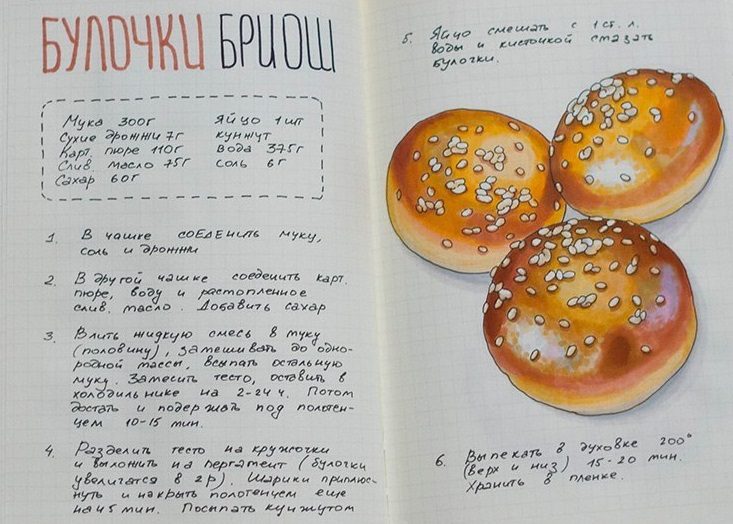 БУЛОЧКИ БРИОШ
Мука 300г
Сухие дрожжи 7г
Карт. пюре 110г
Слив. масло 75г
Сахар 60г
Яйцо 1 шт
кунжут
вода 375г
соль 6г
1. В чашке соеденить муку,
соль и дрожжи
2. В другой чашке соеденить карт.
пюре, воду и растопленное
слив. масло. Добавить сахар
3. Влить жидкую смесь в муку
(половину), замешивать до одно-
родной массы, всыпать остальную
муку. Замесить тесто, оставить в
холодильнике на 2-24 ч. Потом
достать и подержать под полотен-
цем 10-15 мин.
4. Разделить тесто на кружочки
и выложить на пергамент (булочки
увеличатся в 2 р). Шарики приплюс-
нуть и накрыть полотенцем еще
на 45 мин. Посыпать кунжутом
5. Яйцо смешать с 1 ст. л.
воды и кисточкой смазать
булочки.
6. Выпекать в духовке 200°
(верх и низ) 15-20 мин.
Хранить в пленке.